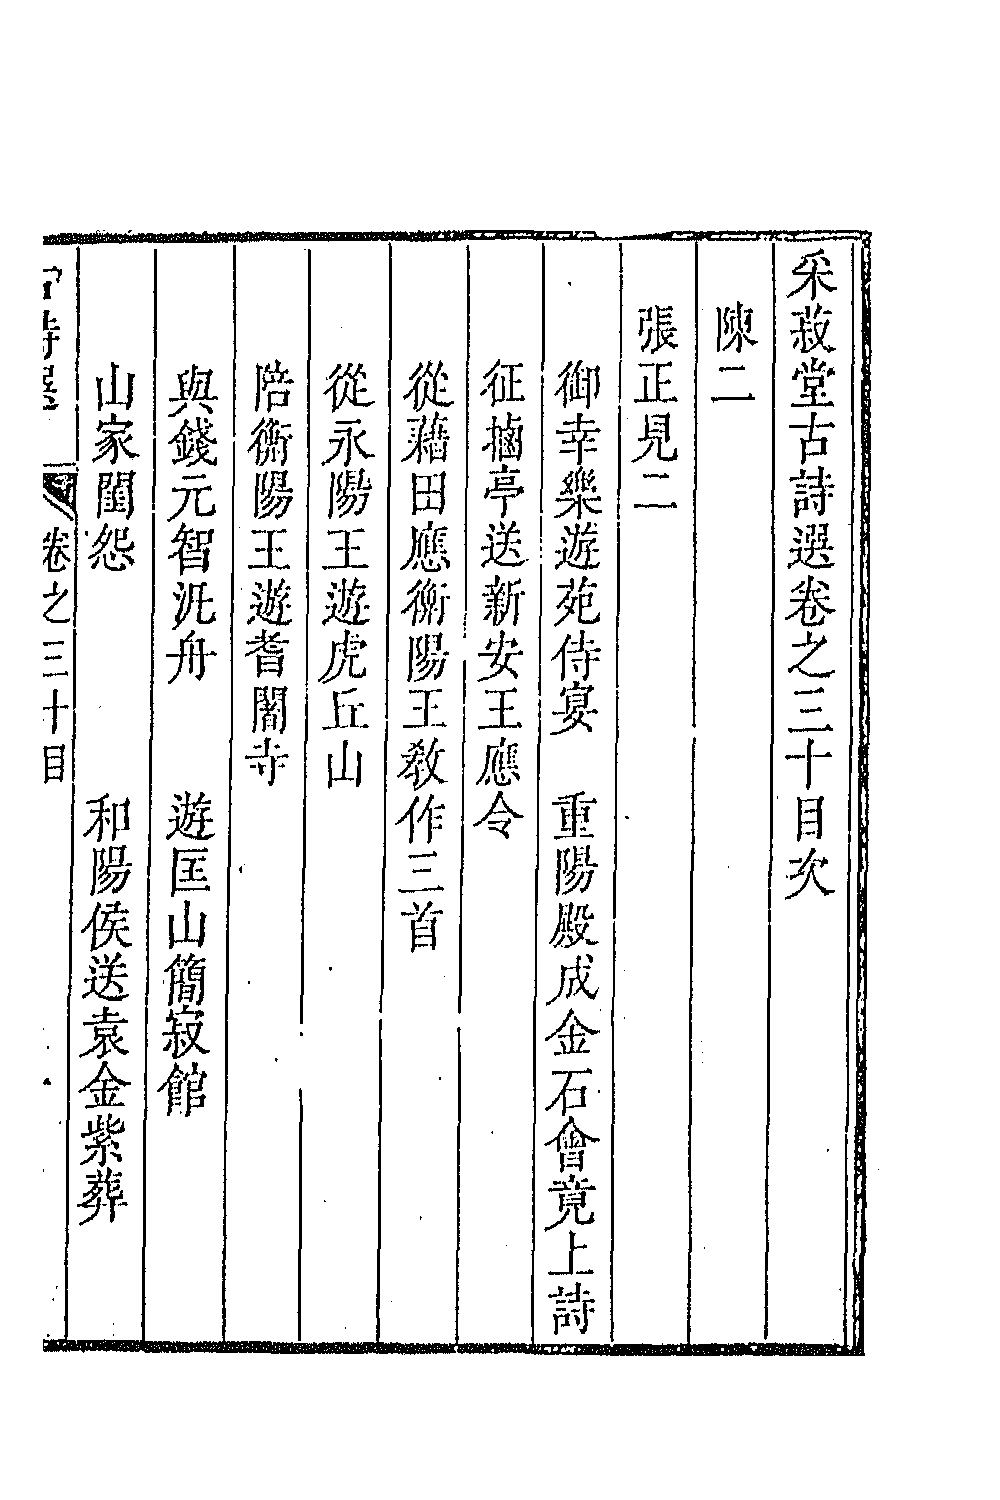 采菽堂古詩選卷之三十目次
陳二
張正見二
御幸樂遊苑侍宴　重陽殿成金石會竟上詩
征虜亭送新安王應令
從藉田應衡陽王教作三首
從永陽王遊虎丘山
陪衡陽王遊耆闍寺
與錢元智汎舟　遊匡山簡寂館
山家閨怨　和陽侯送袁金紫葬
古詩選　卷之三十目